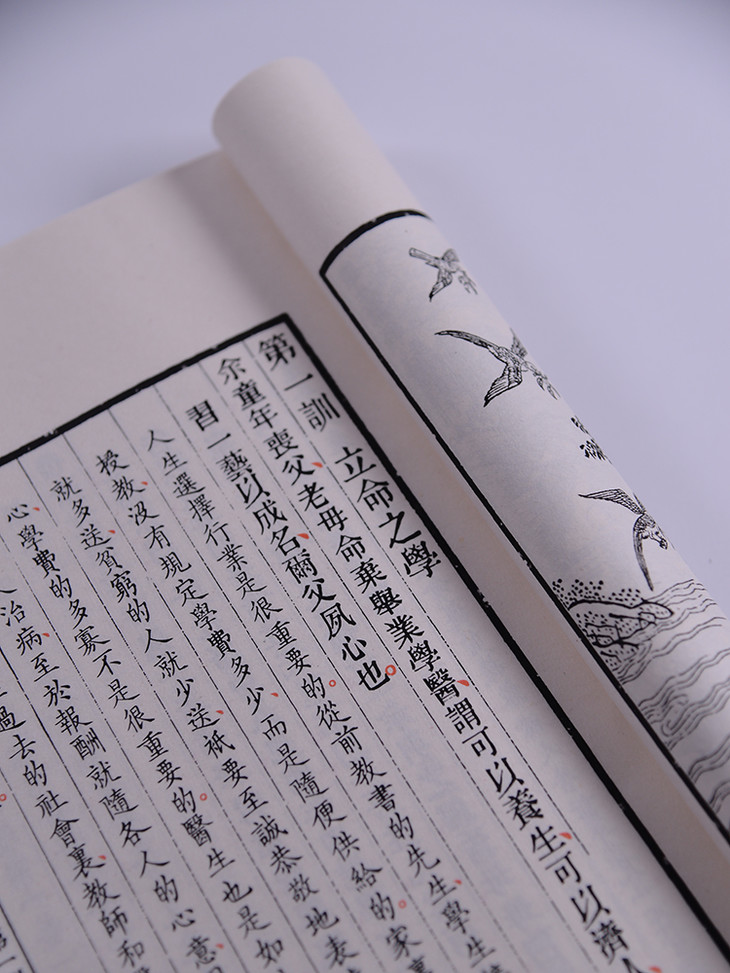 第一訓 立命之學
余童年喪父、老母命棄舉業學醫、謂可以養生、可以濟人
習一藝以成名、爾父夙心也。
人生選擇行業是很重要的。從前教書的先生、學生
授教、沒有規定學費多少、而是隨便供給的。家裏
就多送、貧窮的人就少送、祇要至誠恭敬地表
心、學費的多寡不是很重要的。醫生也是如
人治病、至於報酬就隨各人的心意、
過去的社會裏、教師和